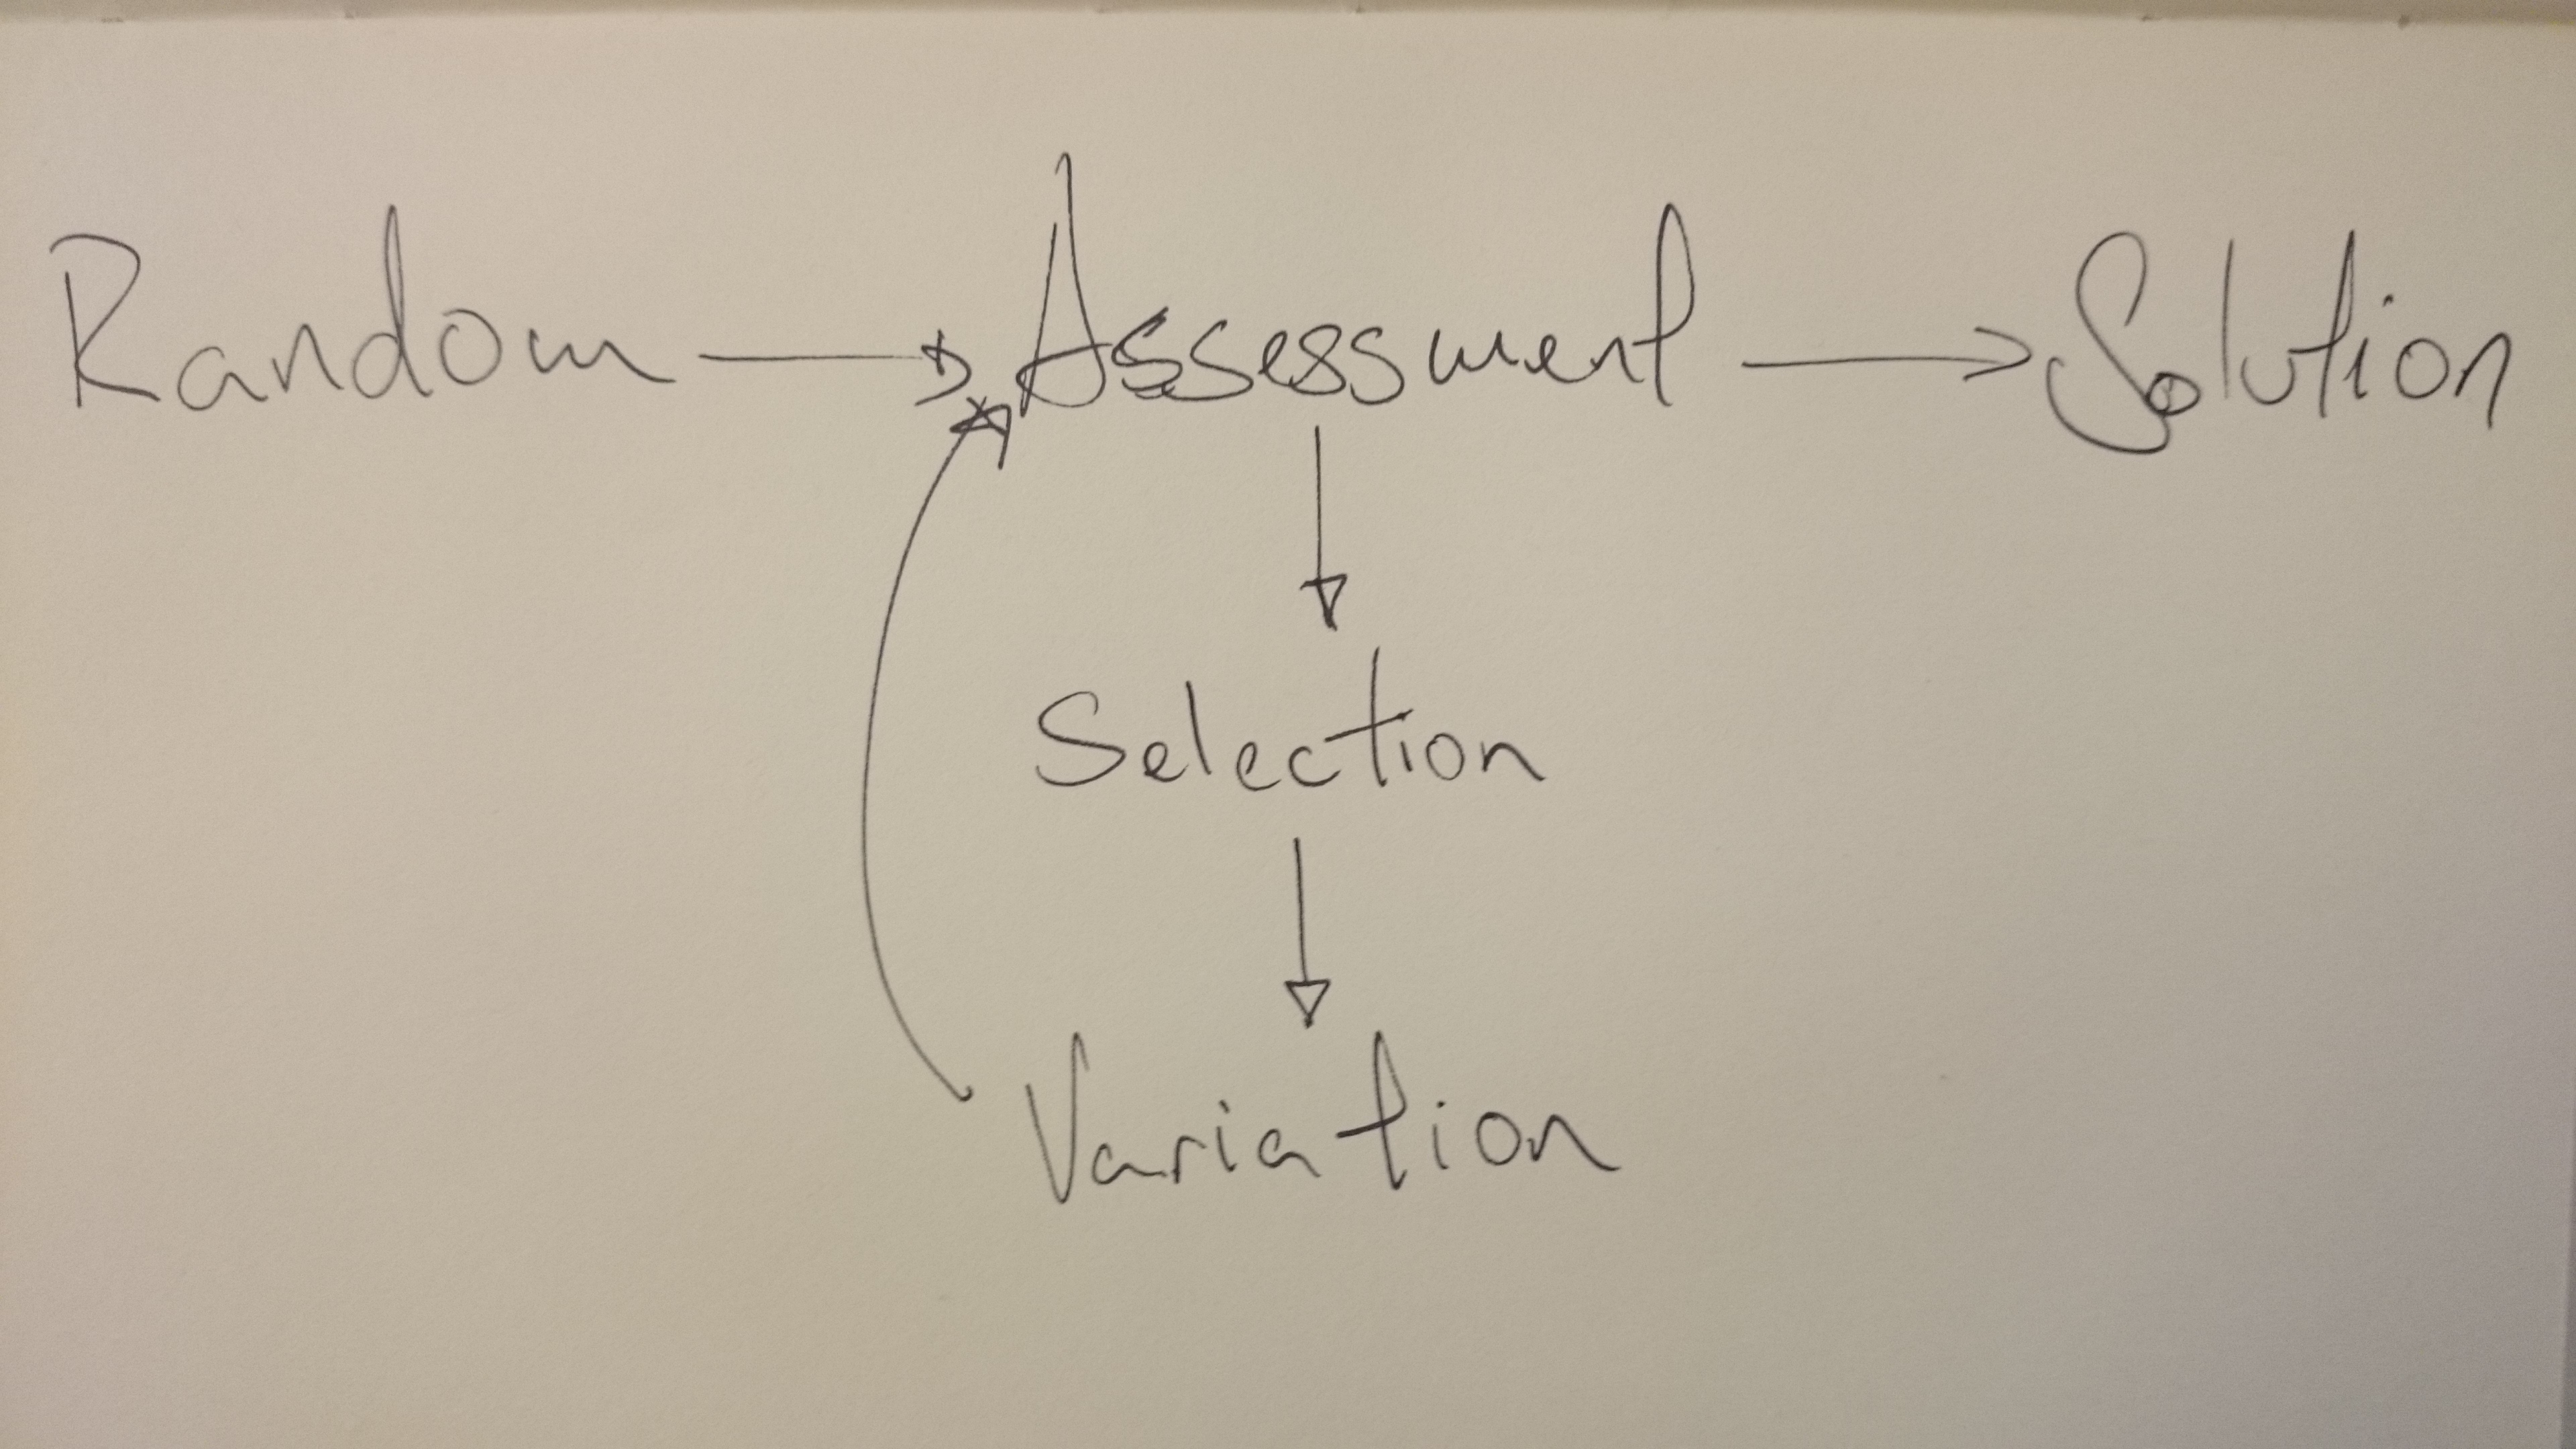 Random Assessment Solution
Selection
Variation